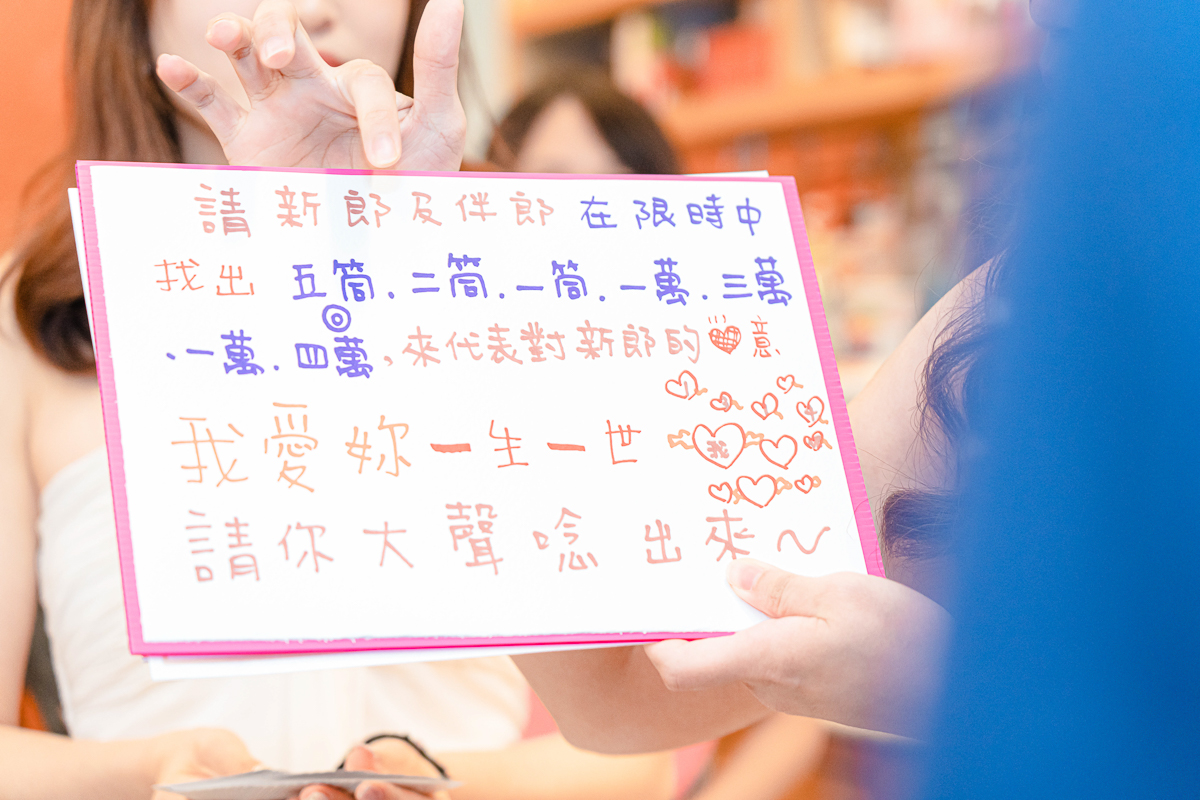 請新郎及伴郎在限時中
找出五筒.二筒.一筒.一萬.三萬
.一萬.四萬,來代表對新郎的意
我愛妳一生一世
請你大聲唸出來～